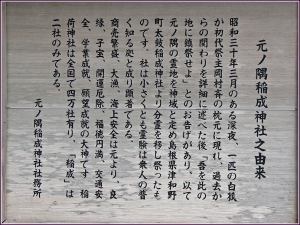 元ノ隅稲成神社之由来
昭和三十年三月のある深夜、一匹の白狐
が初代祭主岡村斉の枕元に現れ、過去か
らの関わりを詳細に述べた後「吾を此の
地に鎮祭せよ」とのお告げがあり、以て
元ノ隅の霊地を神域と定め島根県津和野
町太鼓稲成神社より分霊を移し祭ったも
のです。社は小さくとも霊験は衆人の普
く知る処と成り顕著である。
商売繁盛、大漁、海上安全は元より、良
縁、子宝、開運厄除、福徳円満、交通安
全、学業成就、願望成就の大神です。稲
荷神社は全国で四万社有り、「稲成」は
二社のみである。
元ノ隅稲成神社社務所